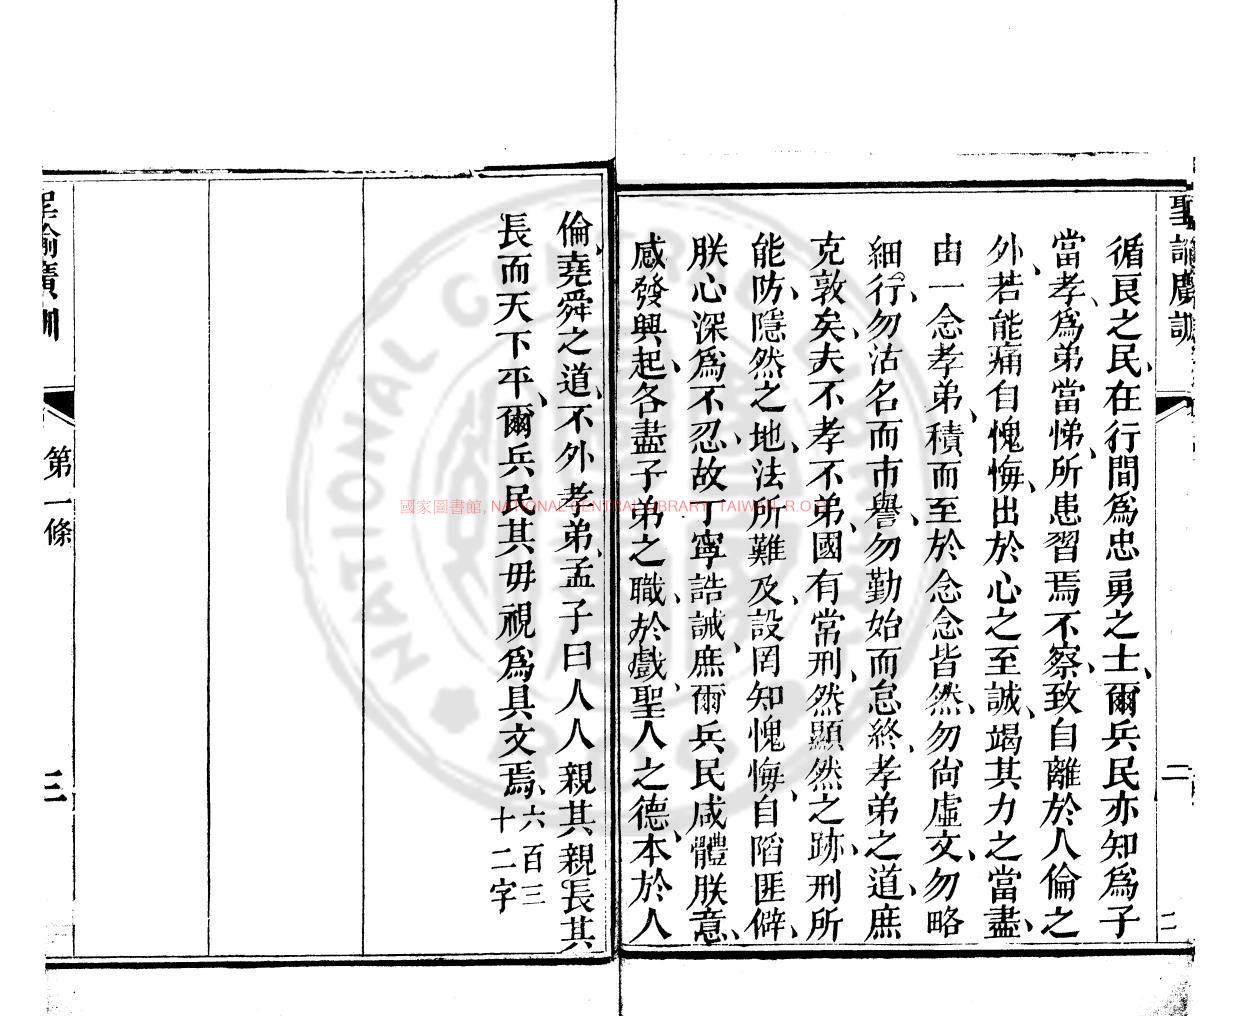 聖諭廣訓
二
循良之民、在行間爲忠勇之士、爾兵民亦知爲子
當孝、爲弟當悌、所患習焉不察、致自離於人倫之
外、若能痛自愧悔、出於心之至誠、竭其力之當盡、
由一念孝弟、積而至於念念皆然、勿尙虛文、勿略
細行、勿沽名而市譽、勿勤始而怠終、孝弟之道、庶
克敦矣、夫不孝不弟、國有常刑、然顯然之跡、刑所
能防、隱然之地、法所難及、設罔知愧悔、自陷匪僻、
朕心深爲不忍、故丁寧誥誡、庶爾兵民咸體朕意、
感發興起、各盡子弟之職、於戲、聖人之德、本於人
倫、堯舜之道、不外孝弟、孟子曰人人親其親長其
長而天下平、爾兵民其毋視爲具文焉、六百三
十二字
聖諭廣訓
第一條
三
國家圖書館, NATIONAL CENTRAL LIBRARY, TAIWAN, R.O.C